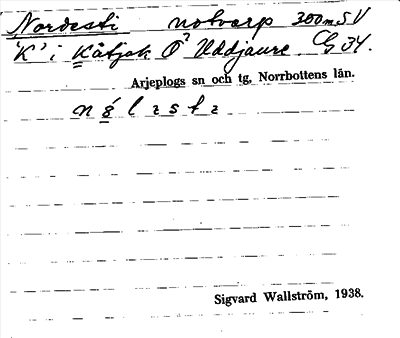 Nordesti notvarp 300m SV
"K" i Kåtjok O² Uddjaure Cg 34.
Arjeplogs sn och tg, Norrbottens län.
Sigvard Wallström, 1938.